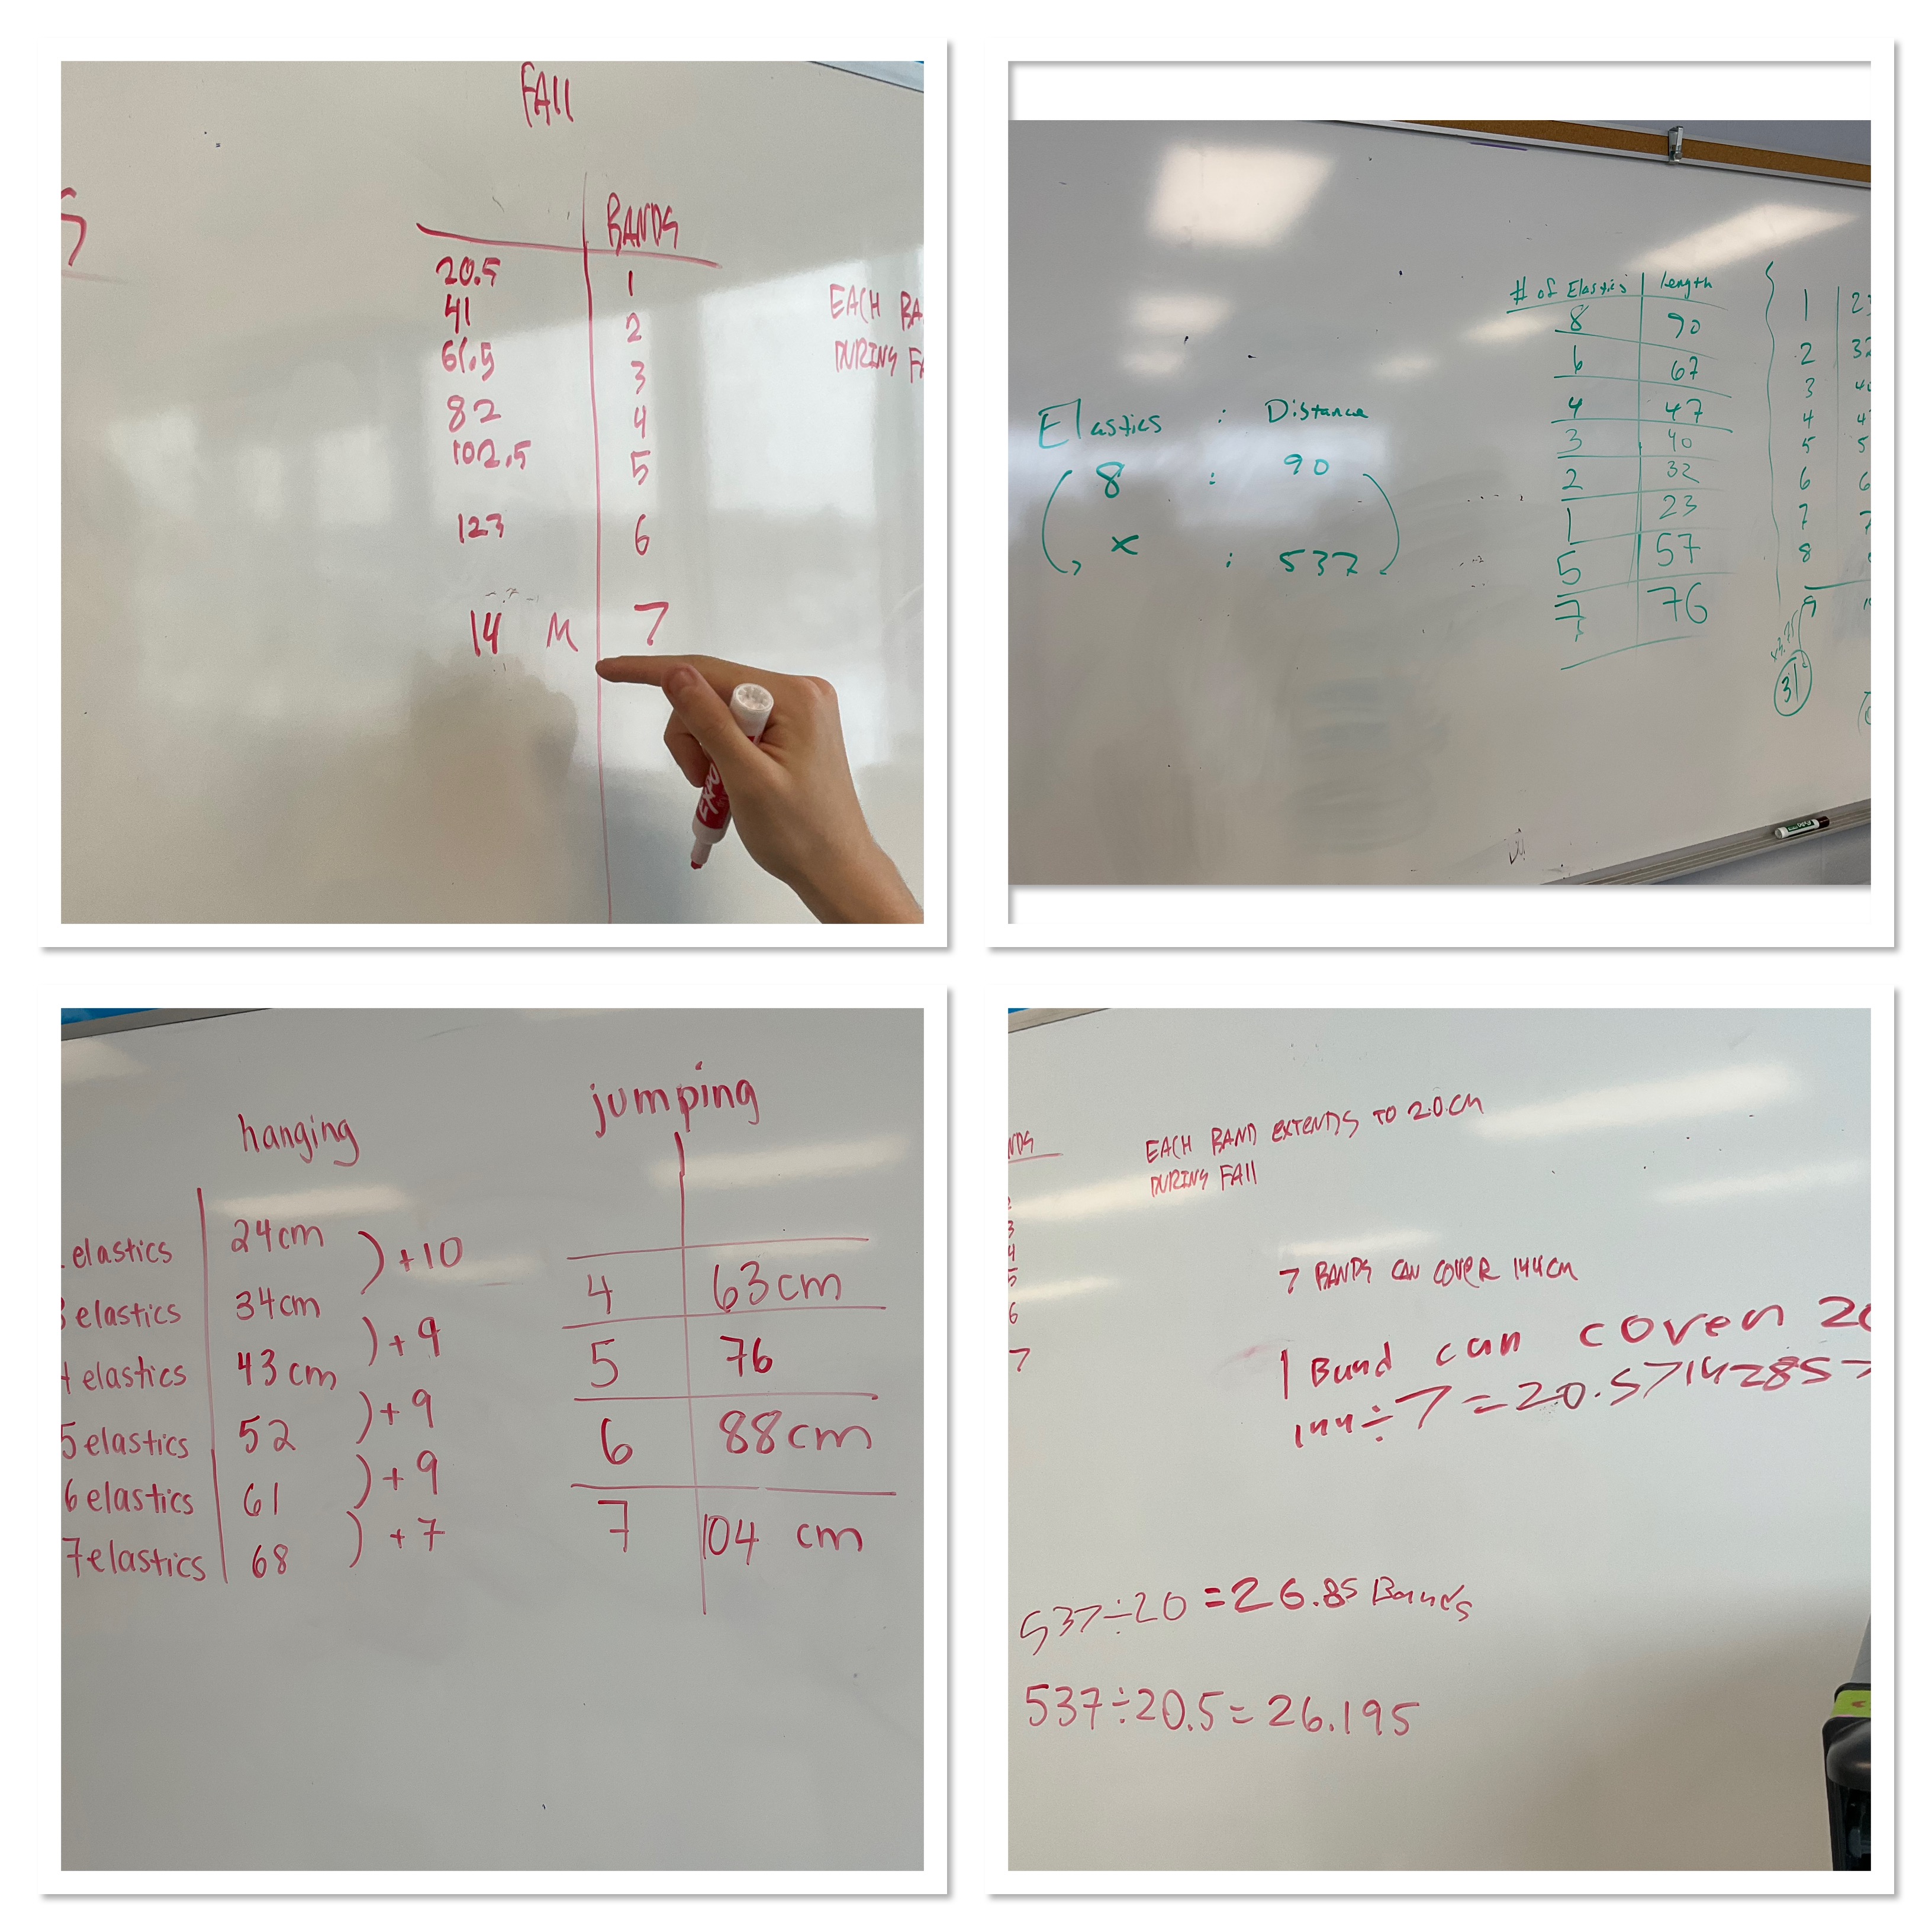 FAll
BANDS
20.5 1
41 2
61.5 3
82 4
102.5 5
123 6
14 M 7
EACH BA
DURING FA
EXPO
Elastics : Distance
8 : 90
x : 537
# of Elastics length
8 90
6 67
4 47
3 40
2 32
1 23
5 57
7 76
1 23
2 32
3 40
4 4
5 5
6 6
7 7
8
9
31
hanging
elastics 24cm
) +10
elastics 34cm
) + 9
elastics 43cm
) + 9
5 elastics 52
) + 9
6 elastics 61
) + 7
7 elastics 68
jumping
4 63cm
5 76
6 88cm
7 104 cm
NDS
3
4
5
6
7
EACH BAND EXTENDS TO 20.CM
DURING FAll
7 BANDS CAN COVER 144CM
1 Band can cover 20
144÷7=20.57142857
537÷20=26.85 Bands
537÷20.5=26.195